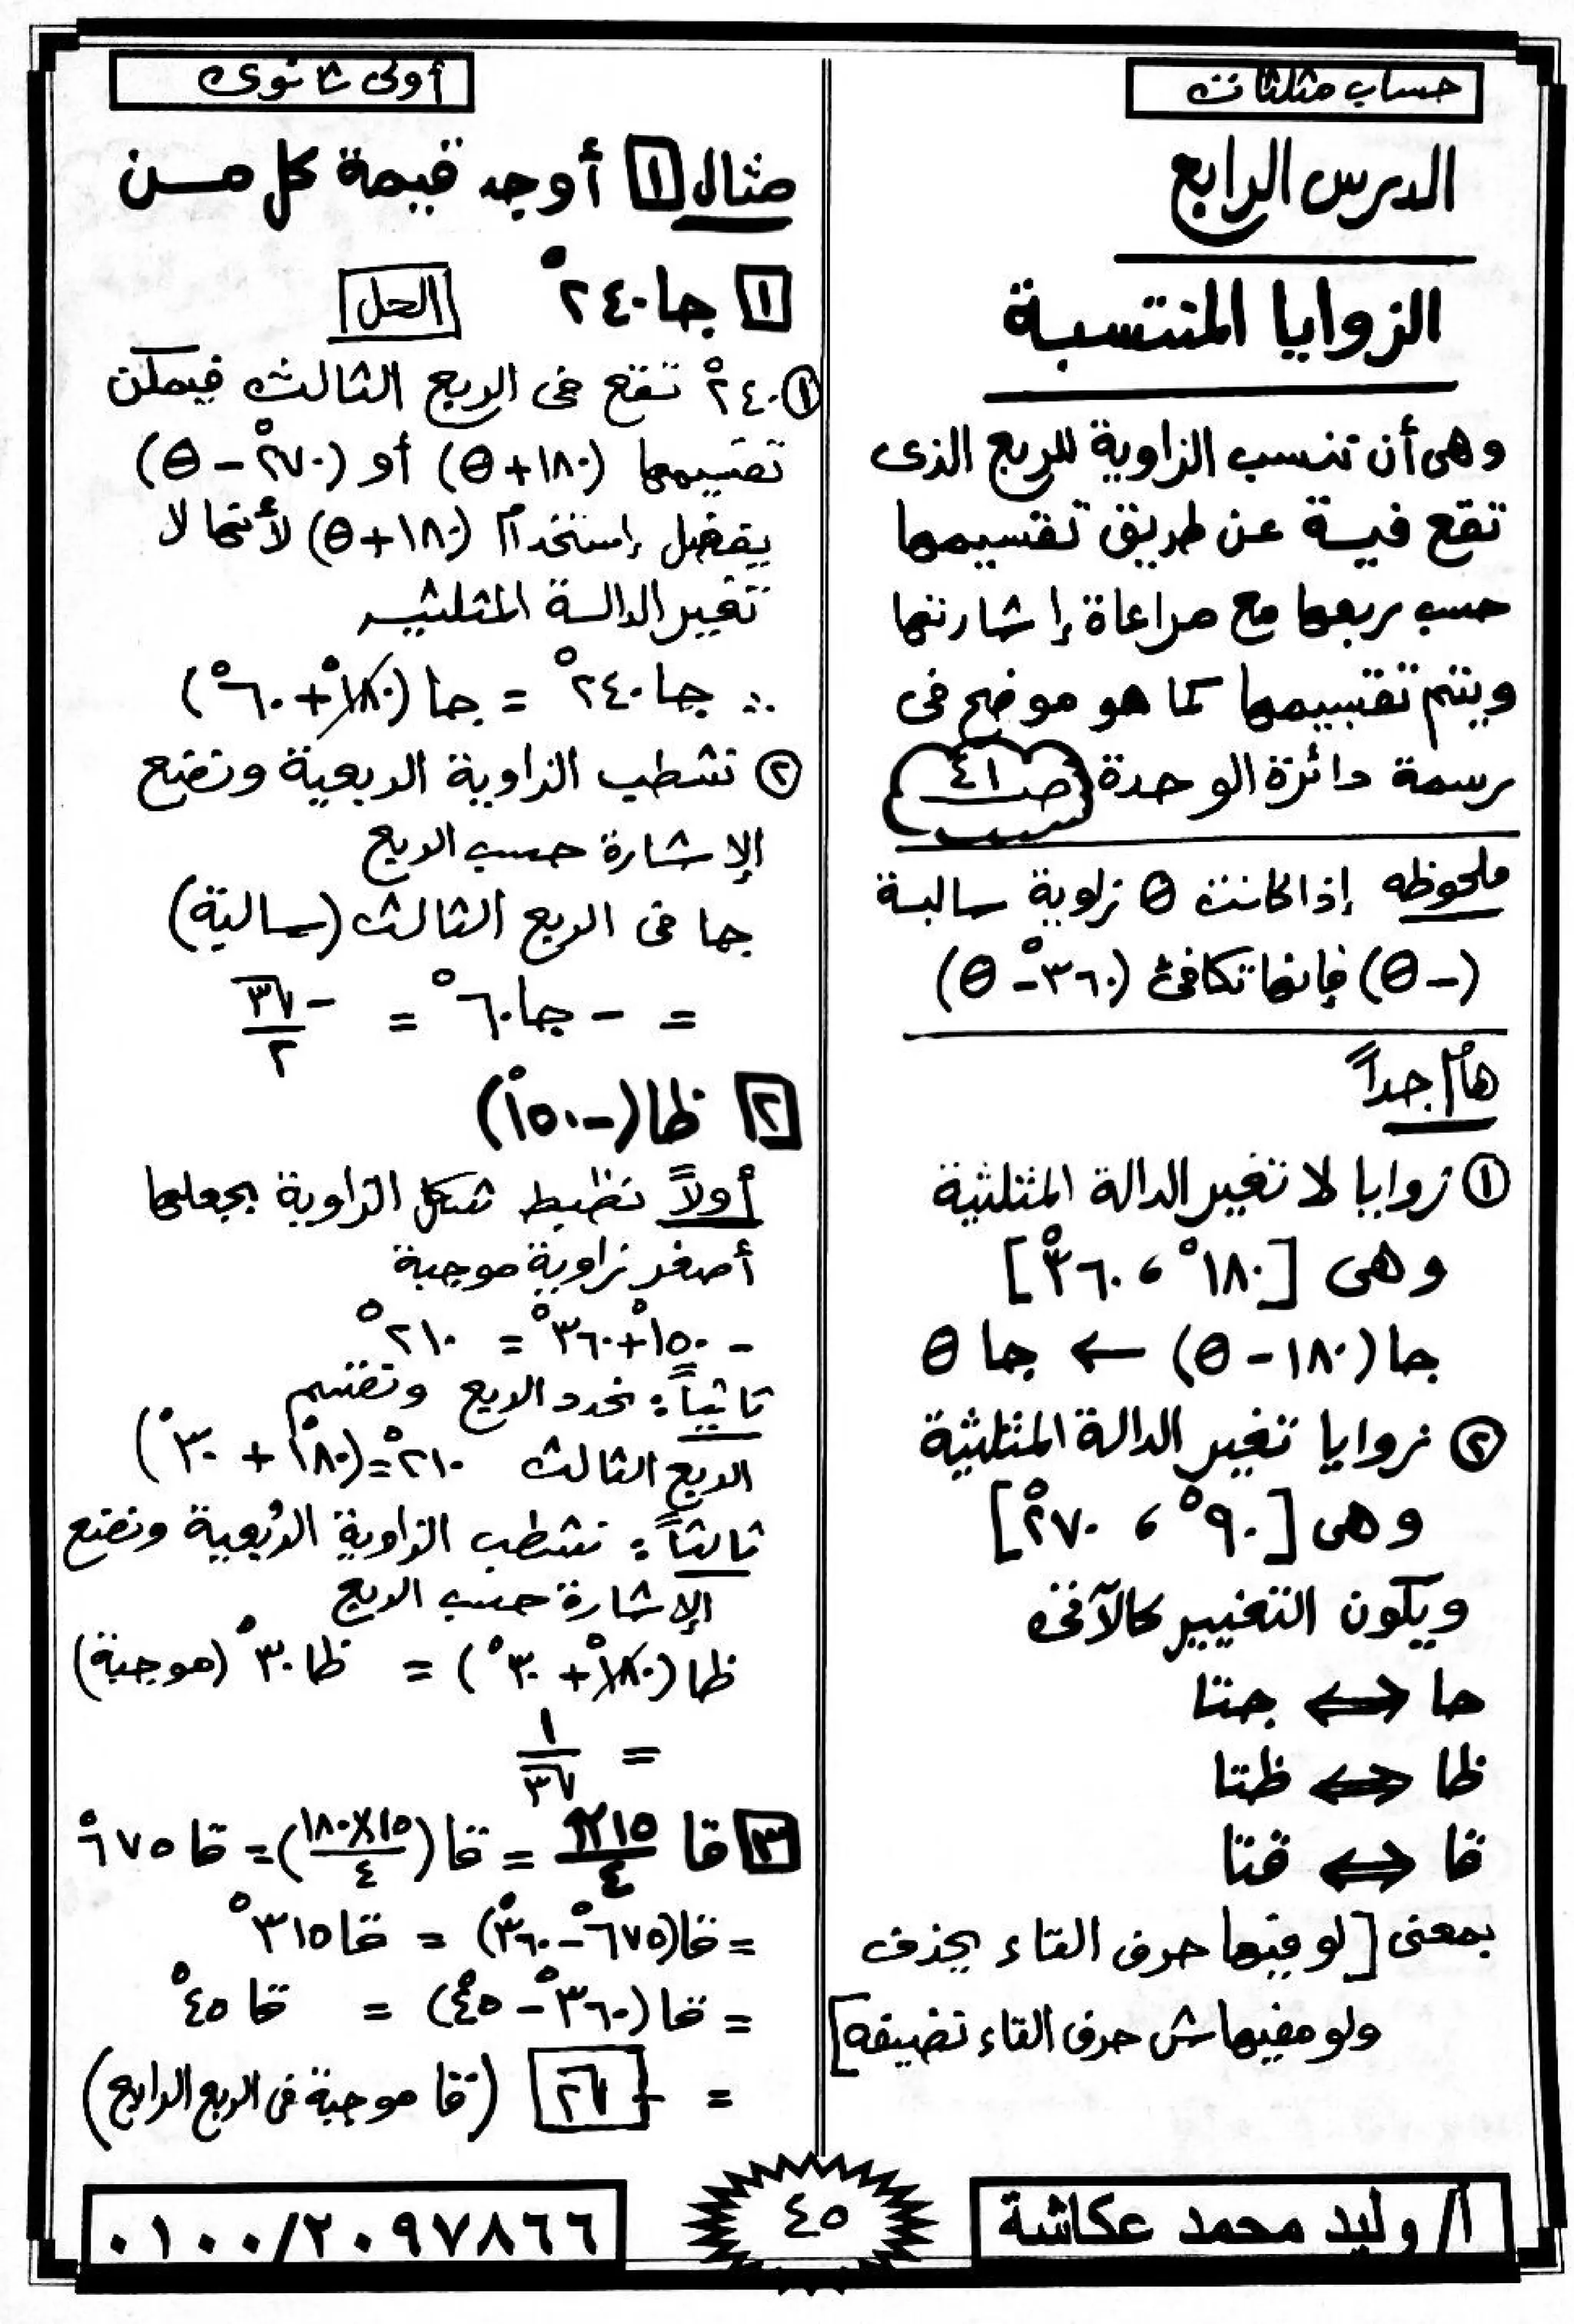 حساب مثلثات
أولى ثانوى
الدرس الرابع
الزوايا المنتسبة
وهى أن تنسب الزاوية للربع الذى
تقع فيه عن طريق تقسيمها
حسب ربعها مع مراعاة إشارتها
ويتم تقسيمها كما هو موضح فى
رسمة دائرة الوحدة ص٤١
ملحوظه إذا كانت θ زاوية سالبة
(-θ) فإنها تكافئ (٣٦٠° - θ)
هام جداً
① زوايا لا تغير الدالة المثلثية
وهى [١٨٠° ، ٣٦٠°]
جا (١٨٠ - θ) ← جا θ
② زوايا تغير الدالة المثلثية
وهى [٩٠° ، ٢٧٠°]
ويكون التغيير كالآتى
جا ⟺ جتا
ظا ⟺ ظتا
قا ⟺ قتا
بمعنى [لو فيها حرف التاء يحذف
ولو مفيهاش حرف التاء تضيفه]
مثال ١ أوجد قيمة كل من
١ جا ٢٤٠° الحل
① ٢٤٠° تقع فى الربع الثالث فيمكن
تقسيمها (١٨٠ + θ) أو (٢٧٠° - θ)
يفضل إستخدام (١٨٠ + θ) لأنها لا
تغير الدالة المثلثية
∴ جا ٢٤٠° = جا (١٨٠° + ٦٠°)
② نشطب الزاوية الربعية ونضع
الإشارة حسب الربع
جا فى الربع الثالث (سالبة)
= - جا ٦٠° = - √٣/٢
٢ ظا (-١٥٠°)
أولاً نظبط شكل الزاوية بجعلها
أصغر زاوية موجبة
- ١٥٠° + ٣٦٠° = ٢١٠°
ثانياً: نحدد الربع ونقسم
الربع الثالث ٢١٠° = (١٨٠° + ٣٠°)
ثالثاً: نشطب الزاوية الرُبعية ونضع
الإشارة حسب الربع
ظا (١٨٠° + ٣٠°) = ظا ٣٠° (موجبة)
= ١/√٣
٣ قا ١٥π/٤ = قا (١٥×١٨٠/٤) = قا ٦٧٥°
= قا (٦٧٥° - ٣٦٠°) = قا ٣١٥°
= قا (٣٦٠° - ٤٥°) = قا ٤٥°
= √٢ (قا موجبة فى الربع الرابع)
أ/ وليد محمد عكاشة
٤٥
٠١٠٠/٢٠٩٧٨٦٦